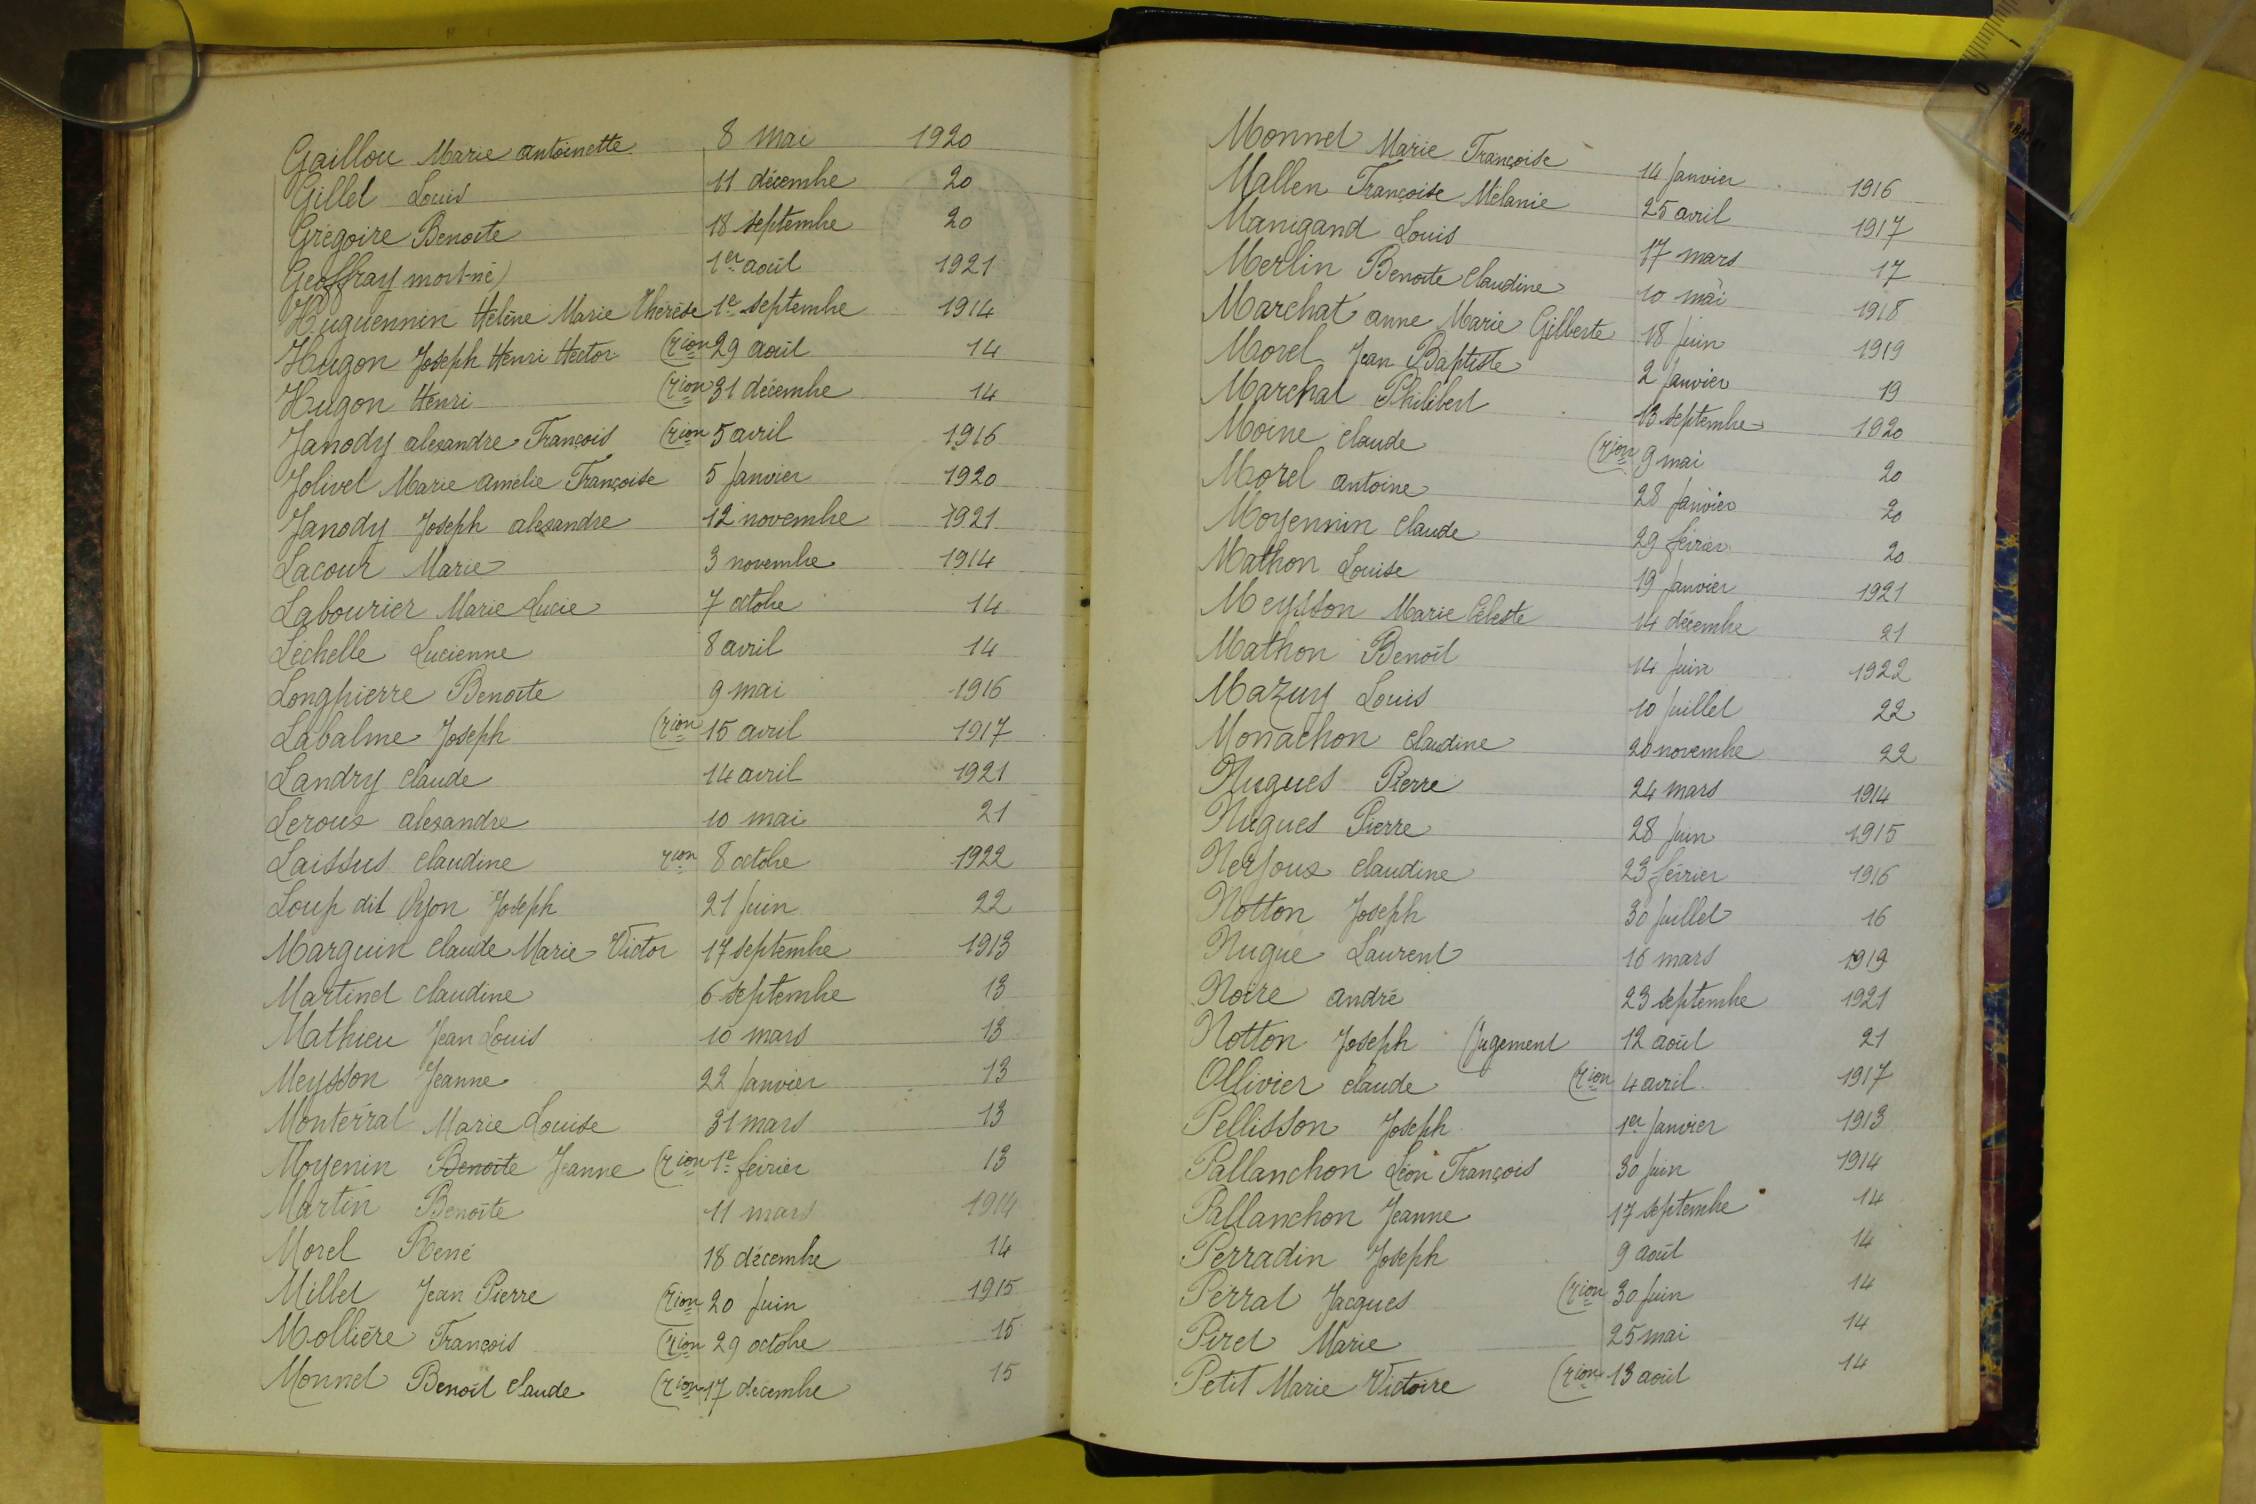 Gaillou Marie Antoinette 8 Mai 1920
Gillet Louis 11 décembre 20
Grégoire Benoîte 18 septembre 20
Geoffray mort-né) 1er août 1921
Huguennin Hélène Marie Thérèse 1er septembre 1914
Hugon Joseph Henri Hector (rion 29 août 14
Hugon Henri (rion 31 décembre 14
Janody alexandre François (rion 5 avril 1916
Jolivet Marie amélie Françoise 5 Janvier 1920
Janody Joseph alexandre 12 novembre 1921
Lacour Marie 3 novembre 1914
Labourier Marie Lucie 7 octobre 14
Léchelle Lucienne 8 avril 14
Longpierre Benoîte 9 mai 1916
Labalme Joseph (rion 15 avril 1917
Landry claude 14 avril 1921
Leroux alexandre 10 mai 21
Laissus claudine rion 8 octobre 1922
Loup dit Joseph 21 Juin 22
Marguin claude Marie Victor 17 septembre 1913
Martinet claudine 6 septembre 13
Mathieu Jean Louis 10 mars 13
Meysson Jeanne 22 Janvier 13
Monterrat Marie Louise 31 mars 13
Moyenin Benoîte Jeanne (rion 1er février 13
Martin Benoîte 11 mars 1914
Morel René 18 décembre 14
Millet Jean Pierre (rion 20 Juin 1915
Mollière François (rion 29 octobre 15
Monnet Benoît claude (rion 17 décembre 15
Monnet Marie Françoise 14 Janvier 1916
Mallen Françoise Mélanie 25 avril 1917
Manigand Louis 17 mars 17
Merlin Benoîte claudine 10 mai 1918
Marchat anne Marie Gilberte 18 Juin 1919
Morel Jean Baptiste 2 Janvier 19
Marchat Philibert 13 septembre 1920
Moine claude (rion 9 mai 20
Morel antoine 28 Janvier 20
Moyennin claude 29 février 20
Mathon Louise 19 Janvier 1921
Meysson Marie Céleste 14 décembre 21
Mathon Benoît 14 Juin 1922
Mazuy Louis 10 Juillet 22
Monachon claudine 20 novembre 22
Nugues Pierre 24 mars 1914
Nugues Pierre 28 Juin 1915
Nerfoux claudine 23 février 1916
Notton Joseph 30 Juillet 16
Nugue Laurent 16 mars 1919
Noire andré 23 septembre 1921
Notton Joseph (Jugement 12 août 21
Ollivier claude (rion 4 avril 1917
Pellisson Joseph 1er Janvier 1913
Pallanchon Léon François 30 Juin 1914
Pallanchon Jeanne 17 septembre 14
Perradin Joseph 9 août 14
Perrat Jacques (rion 30 Juin 14
Piret Marie 25 mai 14
Petit Marie Victoire (rion 13 août 14